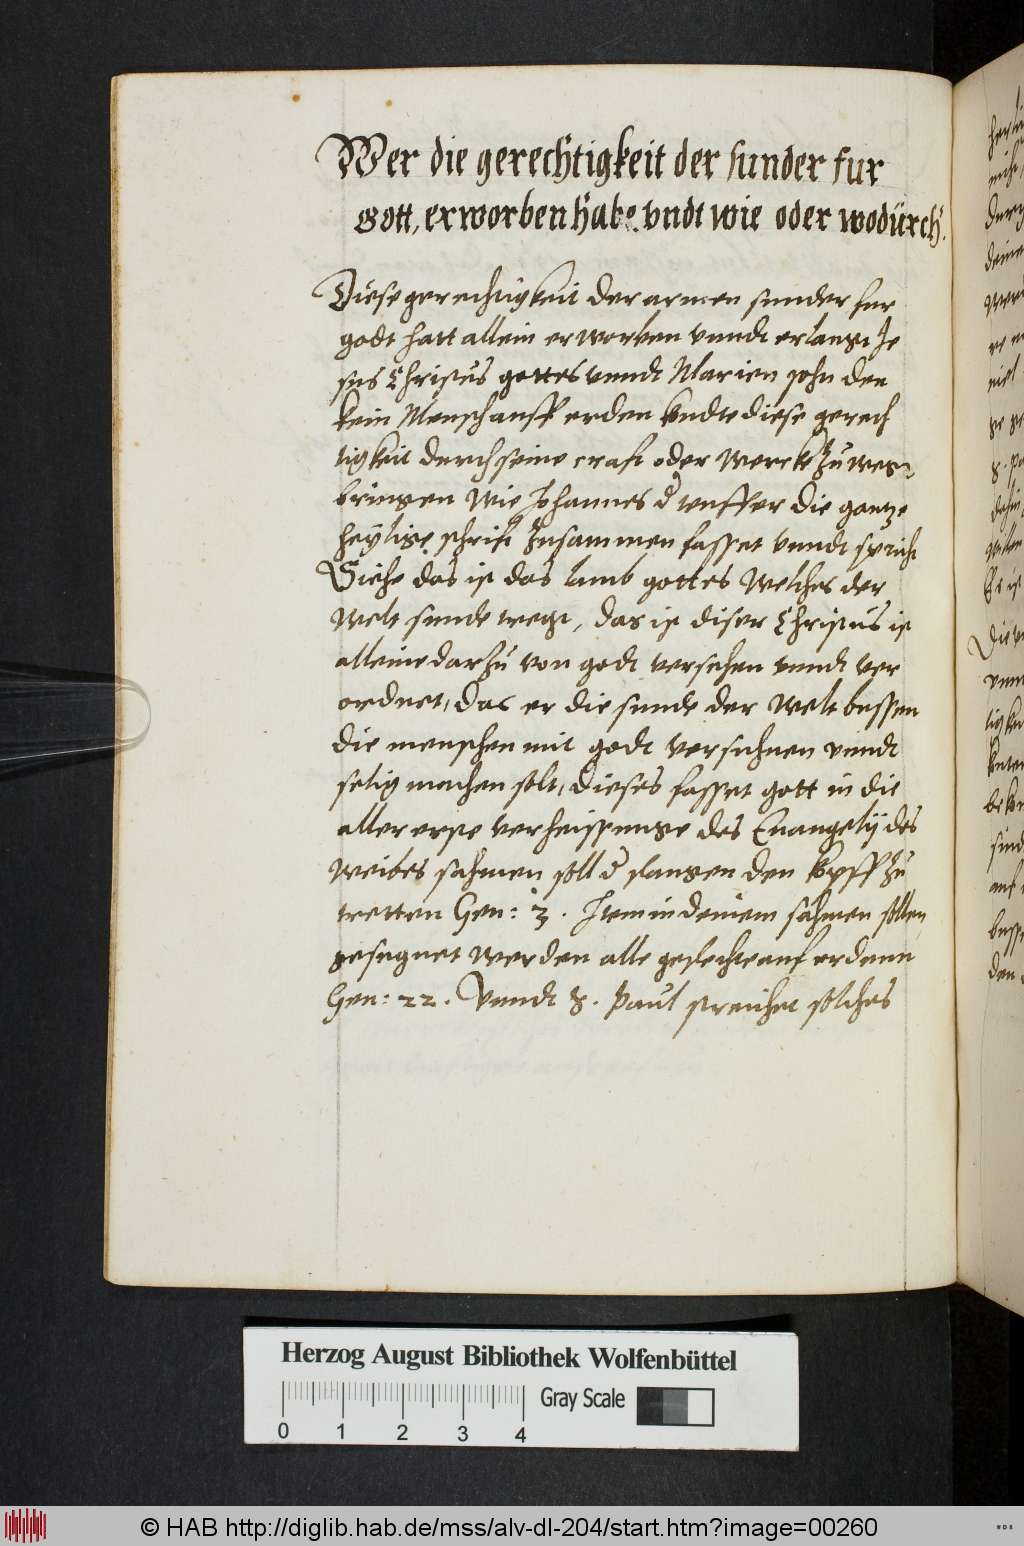 Wer die gerechtigkeit der sunder fur
Gott, erworben habe vndt wie oder wodürch.
Diese gerechtigkeit der armen sunder fur
godt hatt allein erworben vnndt erlangt Je
sus Christus gottes vnndt Marien sohn den
kein Mensch auff erden kondte diese gerech
tigkeit durch seine craft oder wercke zu weg
bringen wie Johannes d teuffer die gantze
heylige schrift zusammen fasset vnndt spricht
Siehe das ist das lamb gottes welches der
welt sunde tregt, das ist diser Christus ist
alleine darzu von godt versehen vnndt ver
ordnet, das er die sunde der welt bessen
die menschen mit godt versuhnen vnndt
selig machen solt, dieses fasset gott in die
aller erste verheissunge des Euangelij des
weibes sahmen soll d slangen den kopff zu
tretten Gen: 3. Item in deinem sahmen sollen
gesegnet werden alle geslechte auf erdenn
Gen: 22. Vnndt S. Paul streichet solches
Herzog August Bibliothek Wolfenbüttel
Gray Scale
0 1 2 3 4
© HAB http://diglib.hab.de/mss/alv-dl-204/start.htm?image=00260